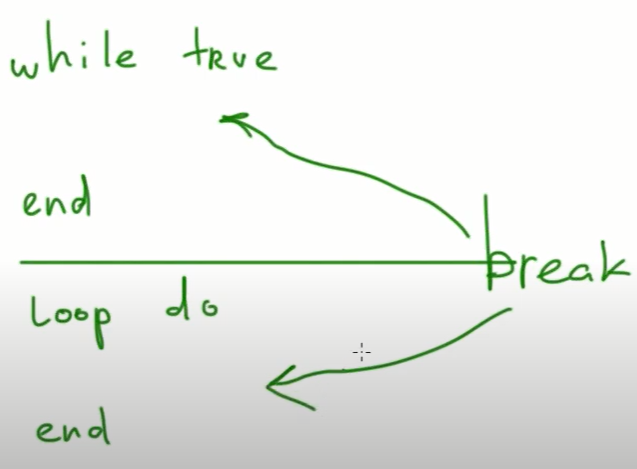 while true
end
break
loop do
end